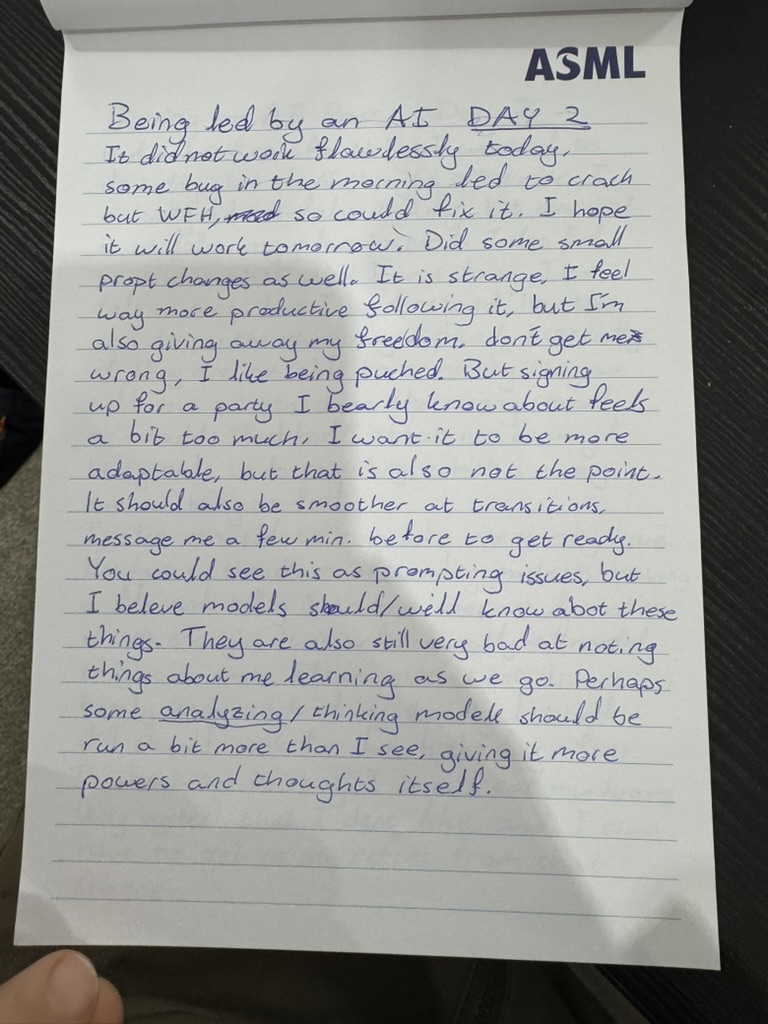 ASML
Being led by an AI DAY 2
It did not work flawlessly today,
some bug in the morning led to crach
but WFH, so could fix it. I hope
it will work tomorrow. Did some small
propt changes as well. It is strange, I feel
way more productive following it, but I'm
also giving away my freedom. don't get me
wrong, I like being puched. But signing
up for a party I bearly know about feels
a bit too much, I want it to be more
adaptable, but that is also not the point.
It should also be smoother at transitions,
message me a few min. before to get ready.
You could see this as prompting issues, but
I beleve models should/we'll know abot these
things. They are also still very bad at noting
things about me learning as we go. Perhaps
some analyzing/thinking models should be
run a bit more than I see, giving it more
powers and thoughts itself.